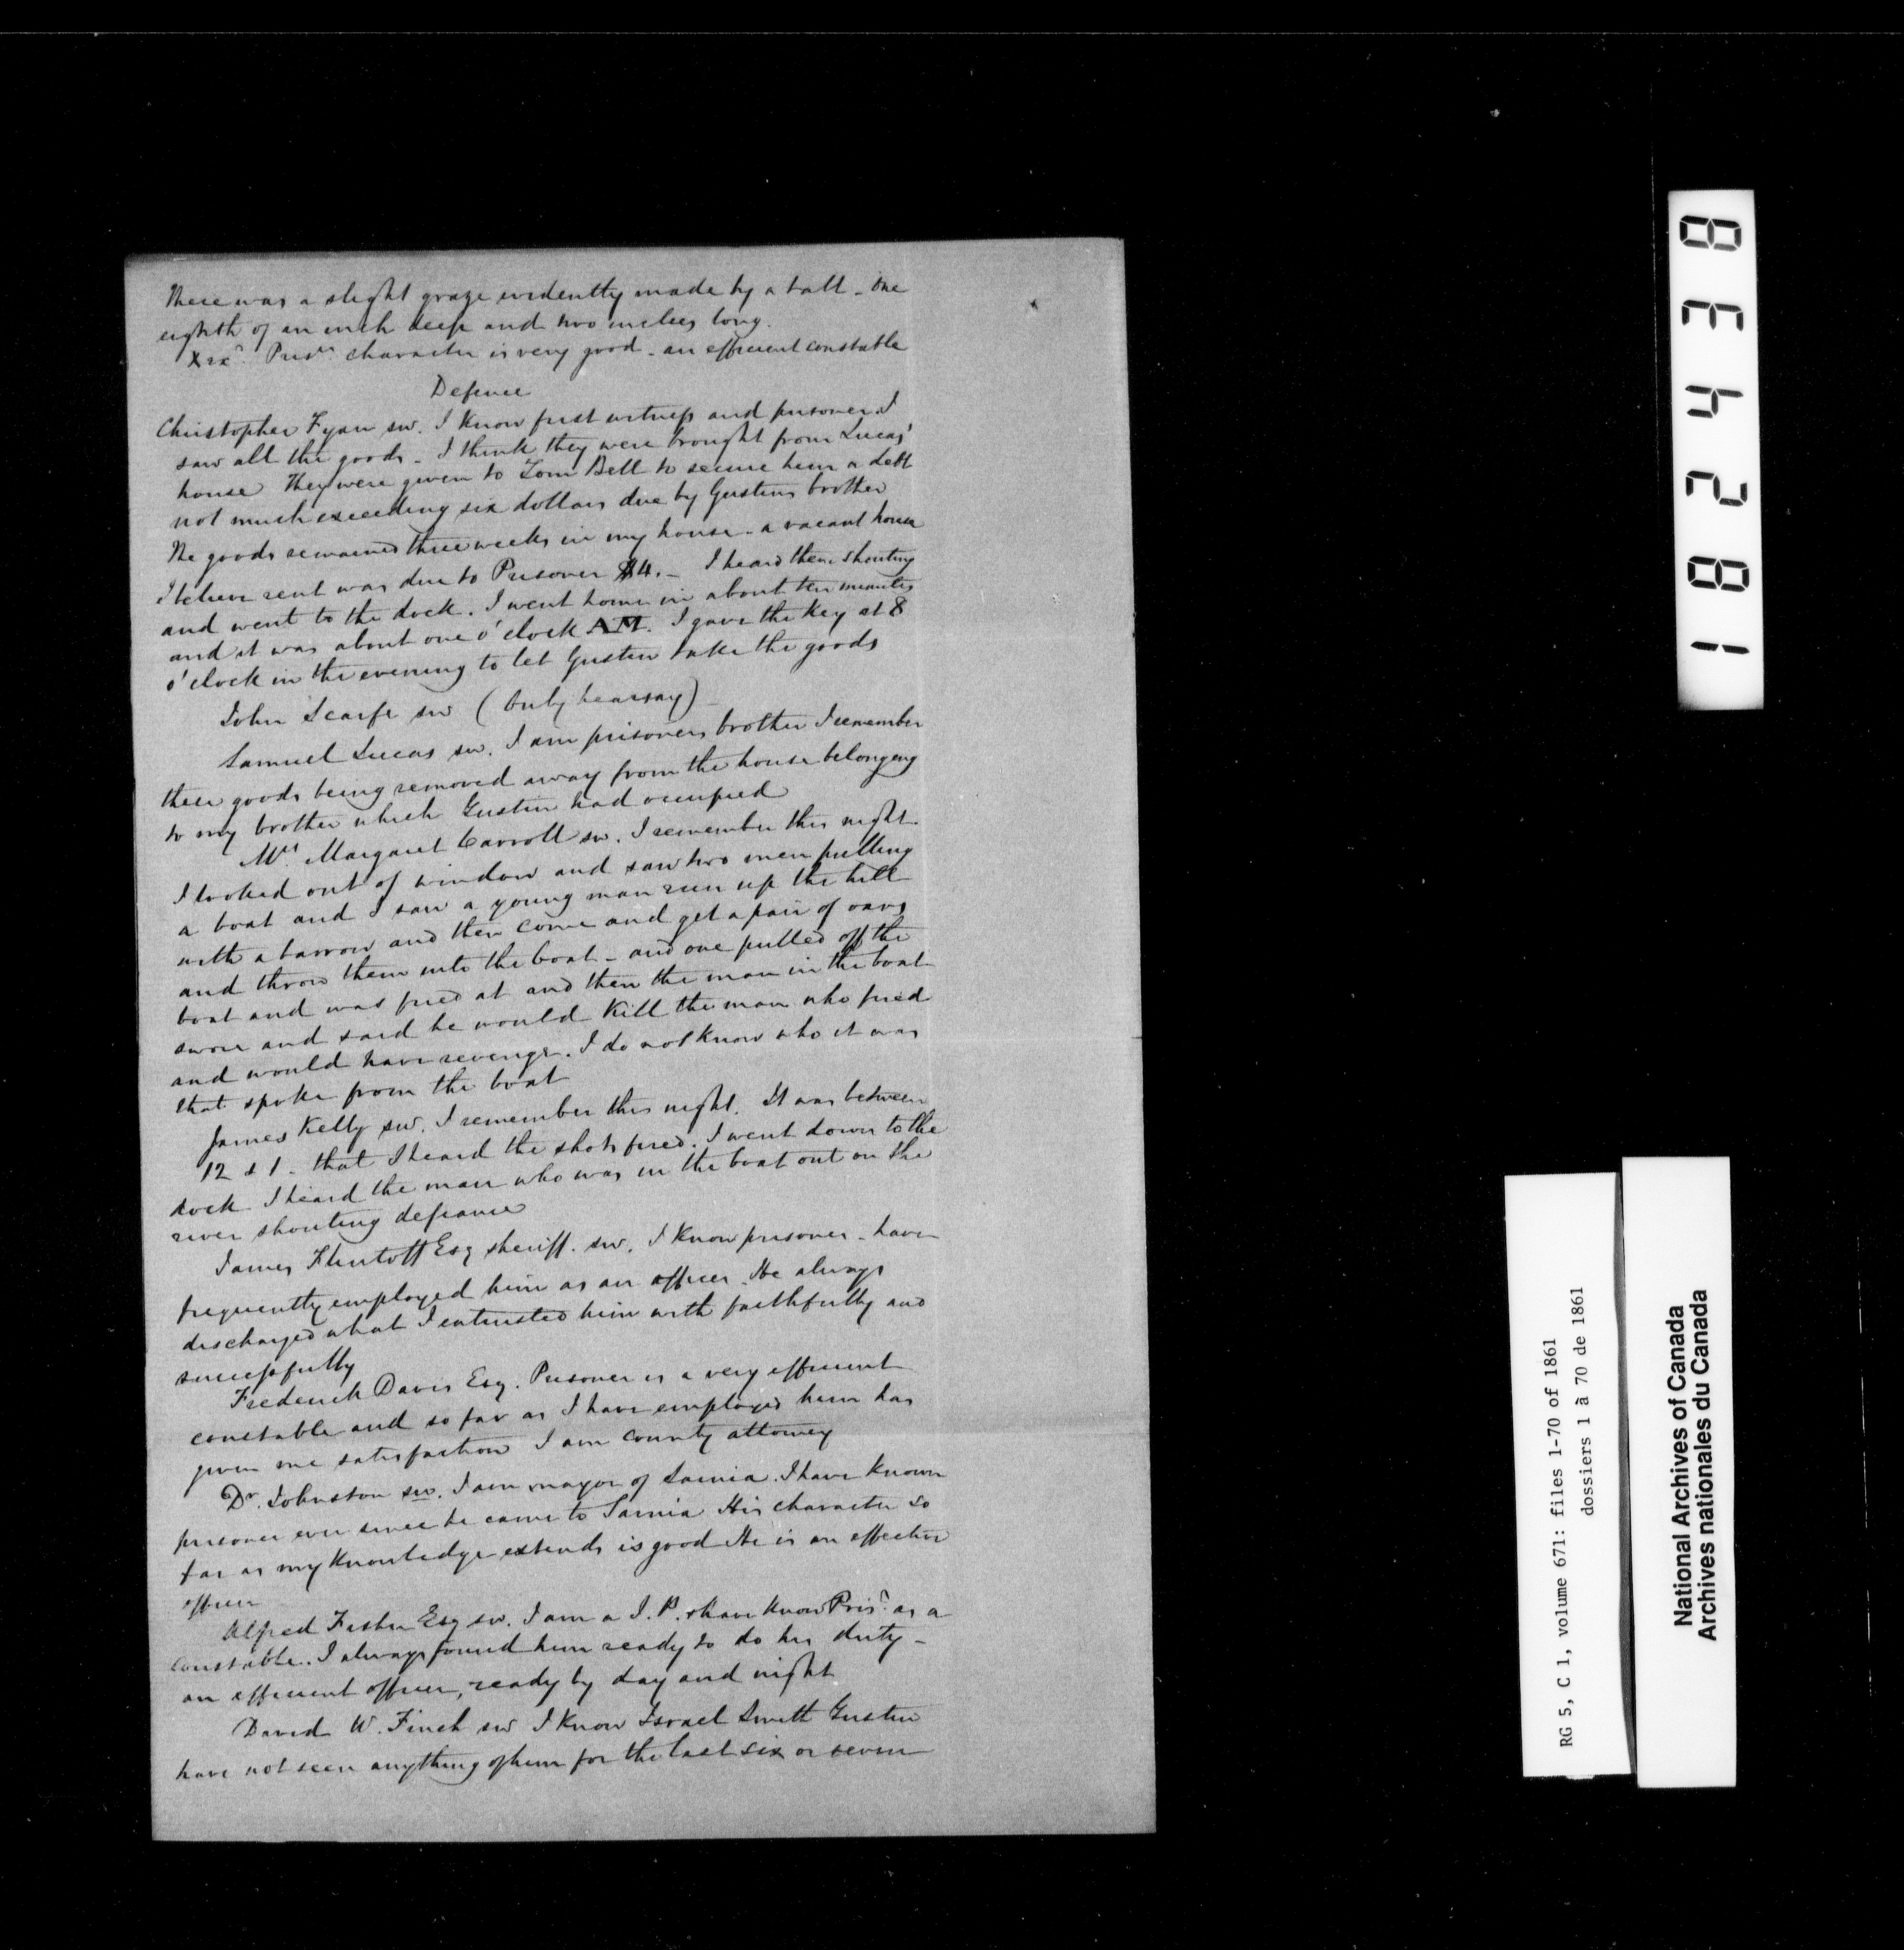 There was a slight graze evidently made by a ball - One
eighth of an inch deep and two inches long.
Xxd. Prisrs character is very good - an efficient constable
Defence
Christopher Fyan sw. I know first witness and prisoner I
saw all the goods - I think they were brought from Lucas'
house They were given to Tom Bell to secure him a debt
not much exceeding six dollars due by Gustins brother
The goods remained three weeks in my house - a vacant house
I believe rent was due to Prisoner $4. - I heard them shouting
and went to the dock. I went home in about ten minutes
and it was about one o'clock AM. I gave the key at 8
o'clock in the evening to let Gustin take the goods
John Scarfe sw (Only hearsay)
Samuel Lucas sw. I am prisoners brother I remember
these goods being removed away from the house belonging
to my brother which Gustin had occupied
Mrs Margaret Carroll sw. I remember this night
I looked out of window and saw two men pulling
a boat and I saw a young man run up the hill
with a barrow and then come and get a pair of oars
and throw them into the boat - and one pulled off the
boat and was fired at and then the man in the boat
swore and said he would kill the man who fired
and would have revenge. I do not know who it was
that spoke from the boat
James Kelly sw. I remember this night. It was between
12 & 1 - that I heard the shots fired. I went down to the
dock I heard the man who was in the boat out on the
river shouting defiance
James Flintoft Esq sheriff. sw. I know prisoner - have
frequently employed him as an officer. He always
discharged what I entrusted him with faithfully and
successfully
Frederick Davis Esq. Prisoner is a very efficient
constable and so far as I have employed him has
given me satisfaction I am county attorney
Dr. Johnston sw. I am mayor of Sarnia. I have known
prisoner ever since he came to Sarnia His character so
far as my knowledge extends is good He is an effective
officer
Alfred Fisher Esq sw. I am a J.P. & have know Prisr. as a
constable. I always found him ready to do his duty -
an efficient officer, ready by day and night
David W. Finch sw I know Israel Smith Gustin
have not seen anything of him for the last six or seven
182438
RG 5, C 1, volume 671: files 1-70 of 1861
dossiers 1 à 70 de 1861
National Archives of Canada
Archives nationales du Canada